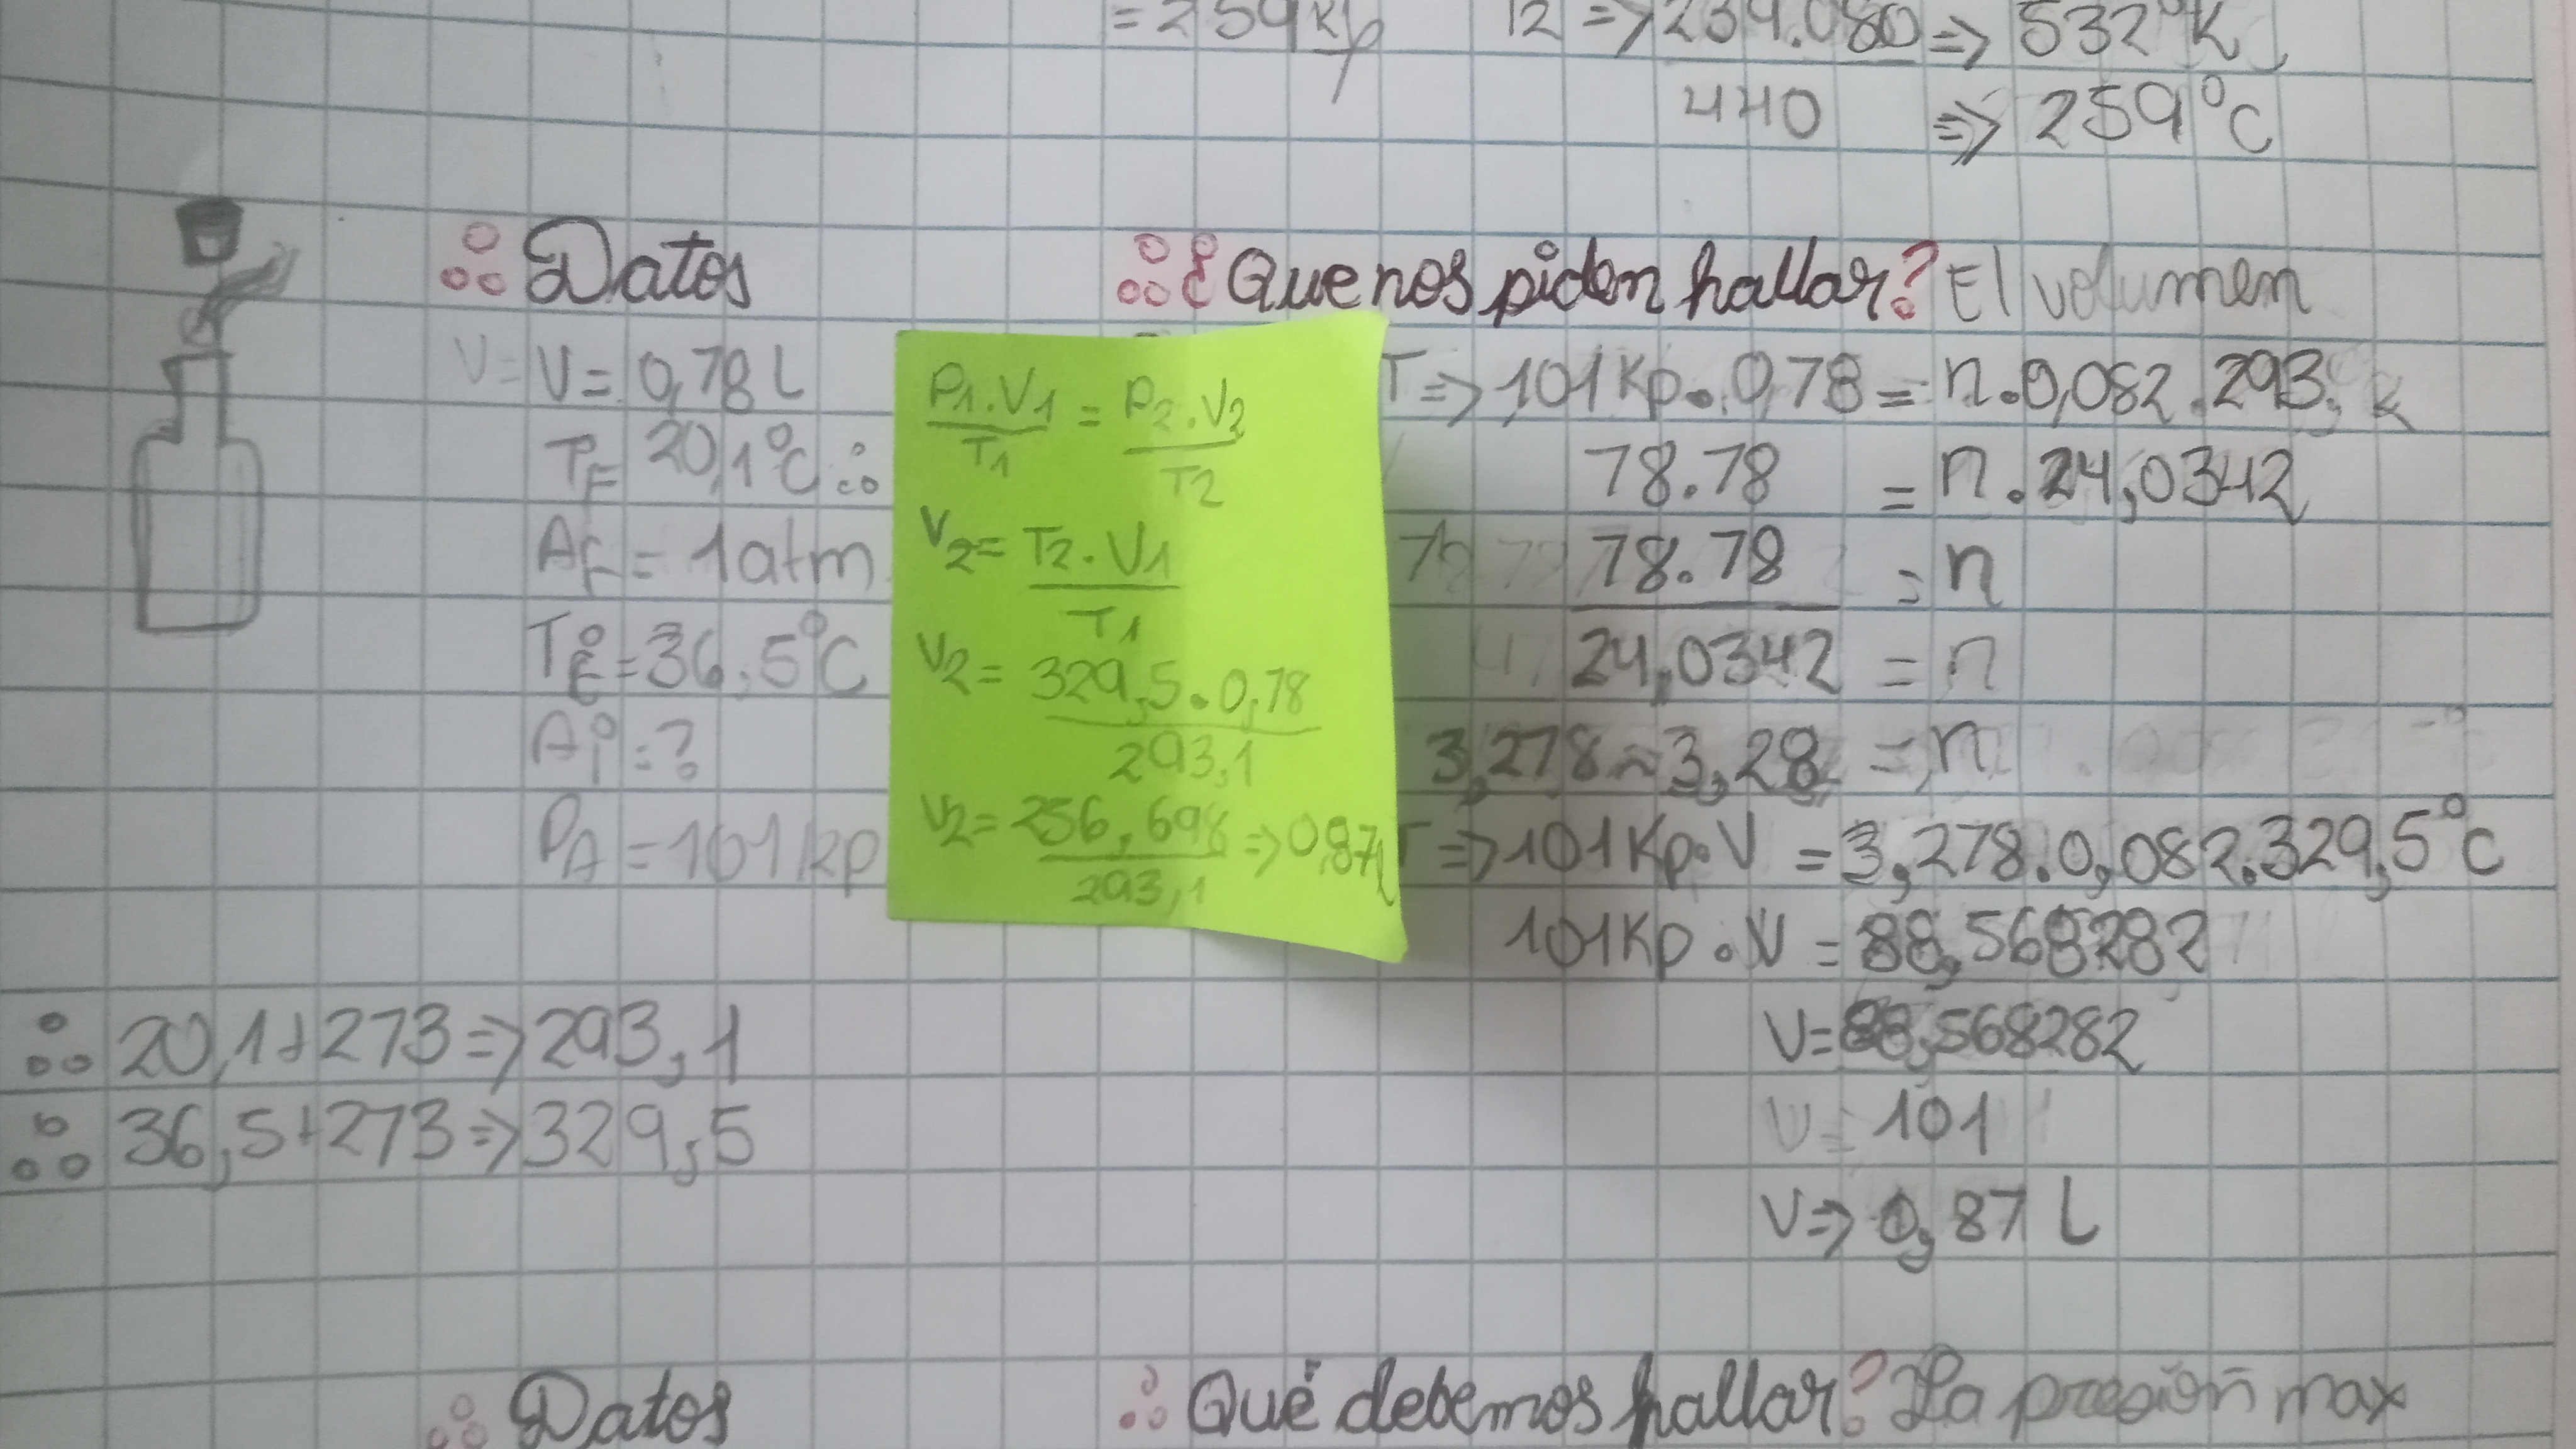 = 259 Kp
T2 => 234.080 => 532°K
440 => 259°C
Datos
V= V= 0,78 L
TF 20,1°C
AF = 1atm
Ti = 36,5°C
Ai = ?
PA = 101 kp
20,1+273 => 293,1
36,5+273 => 329,5
P1.V1 = P2.V2
T1 T2
V2= T2.V1
T1
V2= 329,5.0,78
293,1
V2= 256,698 => 0,87L
293,1
¿Que nos piden hallar? El volumen
T => 101Kp.0,78 = n.0,082.293. K
78.78 = n.24,0342
78.78 = n
24,0342 = n
3,278≈3,28 = n
T => 101Kp.V = 3,278.0,082.329,5°C
101Kp.V = 88,568282
V=88,568282
V= 101
V=> 0,87 L
Datos
Qué debemos hallar? La presión max